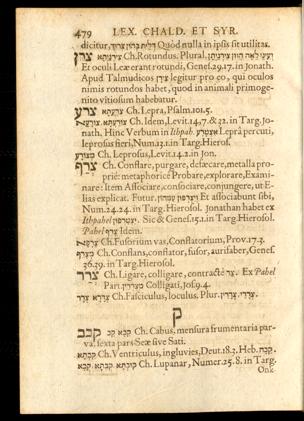 479 LEX. CHALD. ET SYR.
dicitur, דלית צרוך Quòd nulla in ipsis sit utilitas.
Ch. Rotundus. Plural.
Et oculi Leæ erant rotundi, Genes. 29.17. in Jonath.
Apud Talmudicos צרן legitur pro eo, qui oculos
nimis rotundos habet, quod in animali primoge-
nito vitiosum habebatur.
צרע צרעתא Ch. Lepra, Psalm. 101.5.
Ch. Idem, Levit. 14,7. & 32. in Targ. Jo-
nath. Hinc Verbum in Ithpah. אצטרע Leprâ percuti,
leprosus fieri, Num. 12.1. in Targ. Hieros.
מצורע Ch. Leprosus, Levit. 14.2. in Jon.
צרף Ch. Conflare, purgare, defæcare, metalla pro-
priè: metaphoricè Probare, explorare, Exami-
nare: Item Associare, consociare, conjungere, ut E-
lias explicat. Futur. Et associabunt sibi,
Num. 24.24. in Targ. Hierosol. Jonathan habet ex
Ithpahel Sic & Genes. 15.1. in Targ. Hierosol.
Pahel צרף Idem.
Ch. Fusorium vas, Conflatorium, Prov. 17.3.
Ch. Conflans, conflator, fusor, aurifaber, Genes.
36.39. in Targ. Hierosol.
צרר Ch. Ligare, colligare, contractè צר. Ex Pahel
Part. Colligati, Jos. 9.4.
צררא Ch. Fasciculus, loculus. Plur. צררין.
ק
קבב קבא Ch. Cabus, mensura frumentaria par-
va. sexta pars Seæ sive Sati.
קבתא Ch. Ventriculus, ingluvies, Deut. 18.3. Heb. קבה.
קובתא Ch. Lupanar, Numer. 25.8. in Targ.
Onk